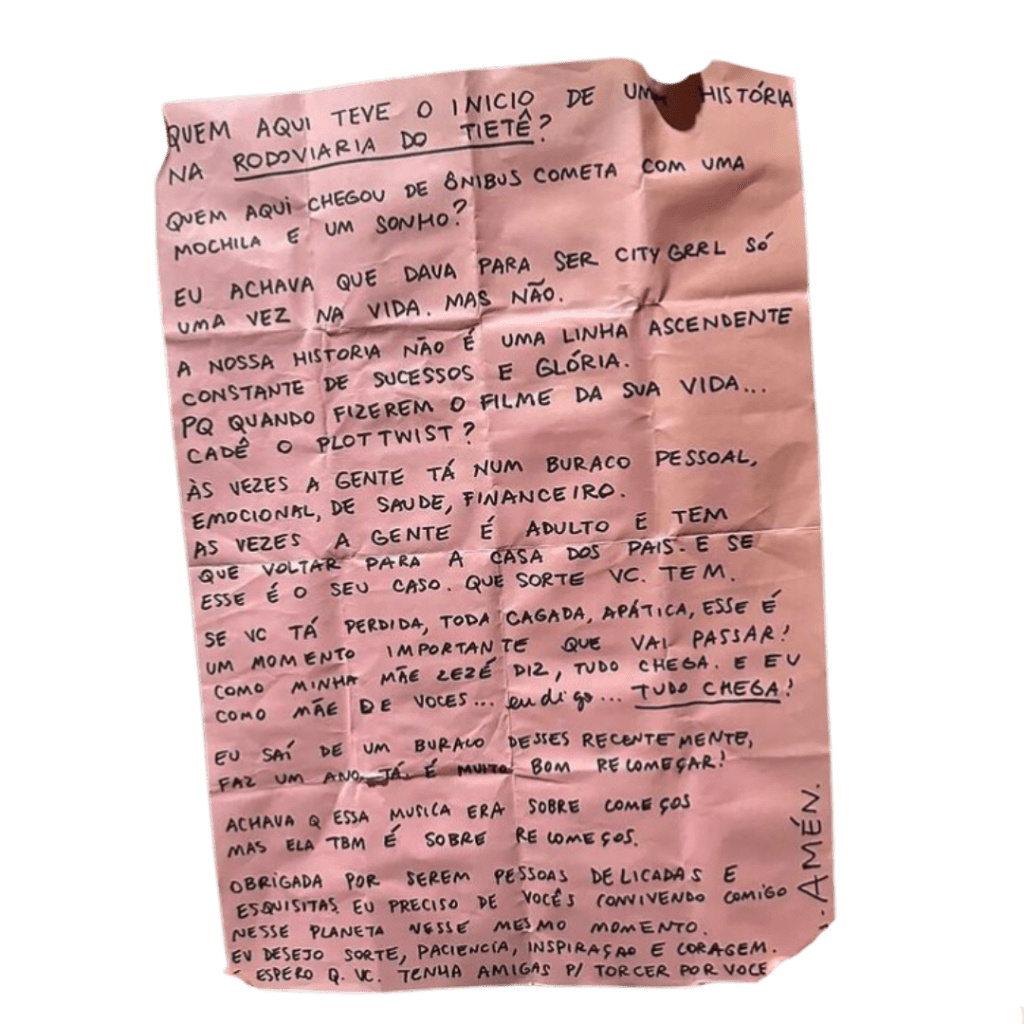 QUEM AQUI TEVE O INICIO DE UMA HISTÓRIA
NA RODOVIARIA DO TIETÊ?
QUEM AQUI CHEGOU DE ÔNIBUS COMETA COM UMA
MOCHILA E UM SONHO?
EU ACHAVA QUE DAVA PARA SER CITY GRRL SÓ
UMA VEZ NA VIDA. MAS NÃO.
A NOSSA HISTORIA NÃO É UMA LINHA ASCENDENTE
CONSTANTE DE SUCESSOS E GLÓRIA.
PQ QUANDO FIZEREM O FILME DA SUA VIDA...
CADÊ O PLOT TWIST?
ÀS VEZES A GENTE TÁ NUM BURACO PESSOAL,
EMOCIONAL, DE SAUDE, FINANCEIRO.
AS VEZES A GENTE É ADULTO E TEM
QUE VOLTAR PARA A CASA DOS PAIS. E SE
ESSE É O SEU CASO. QUE SORTE VC. TEM.
SE VC TÁ PERDIDA, TODA CAGADA, APÁTICA, ESSE É
UM MOMENTO IMPORTANTE QUE VAI PASSAR!
COMO MINHA MÃE ZEZÉ DIZ, TUDO CHEGA. E EU
COMO MÃE DE VOCES... eu digo... TUDO CHEGA!
EU SAÍ DE UM BURACO DESSES RECENTEMENTE,
FAZ UM ANO JÁ. É MUITO BOM RECOMEÇAR!
ACHAVA Q ESSA MUSICA ERA SOBRE COMEÇOS
MAS ELA TBM É SOBRE RECOMEÇOS.
OBRIGADA POR SEREM PESSOAS DELICADAS E
ESQUISITAS. EU PRECISO DE VOCÊS CONVIVENDO COMIGO
NESSE PLANETA NESSE MESMO MOMENTO.
EU DESEJO SORTE, PACIENCIA, INSPIRAÇÃO E CORAGEM.
ESPERO Q. VC. TENHA AMIGAS P/ TORCER POR VOCE
. AMÉN.